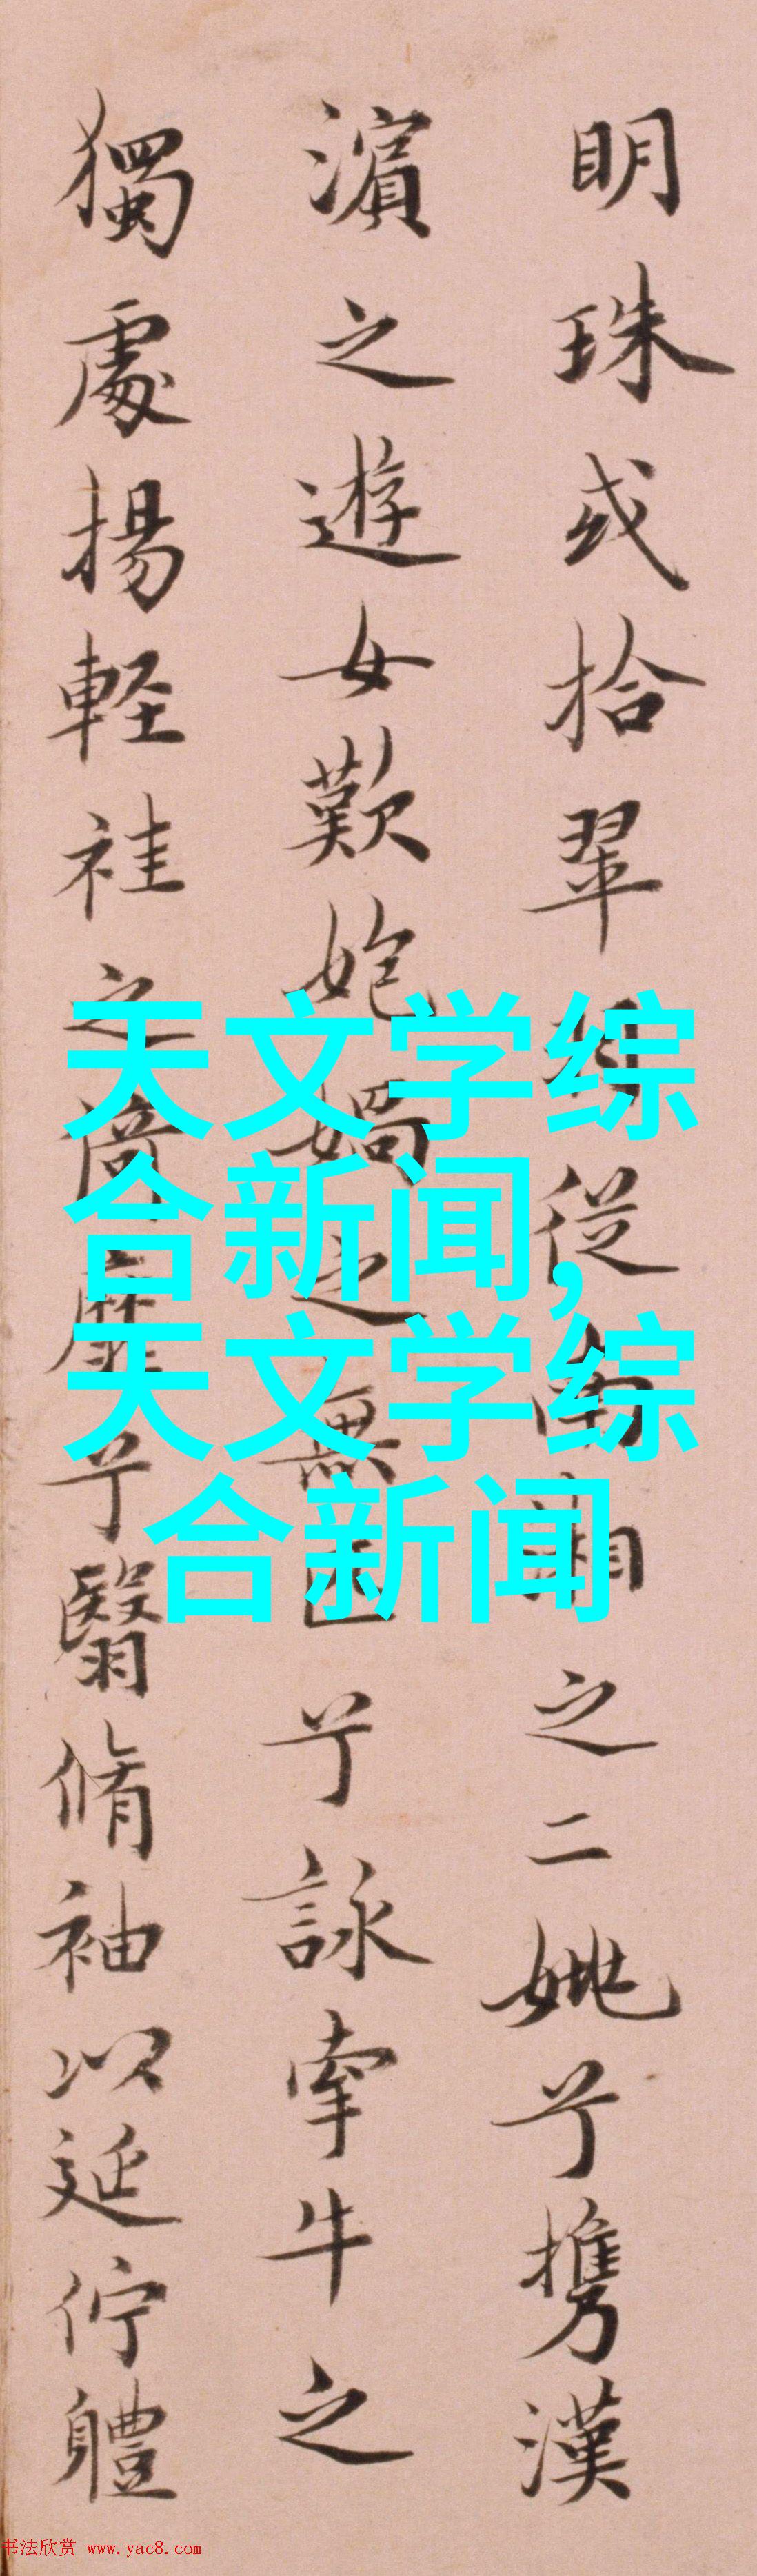 明珠或拾翠羽從南湘之二姚兮携漢
濱之遊女歎媧之無匹兮詠牽牛之
獨處揚軽袿之靡兮翳脩袖以延佇體
天文学综
合新闻,
天文学综
合新闻
书法欣赏 www.yac8.com